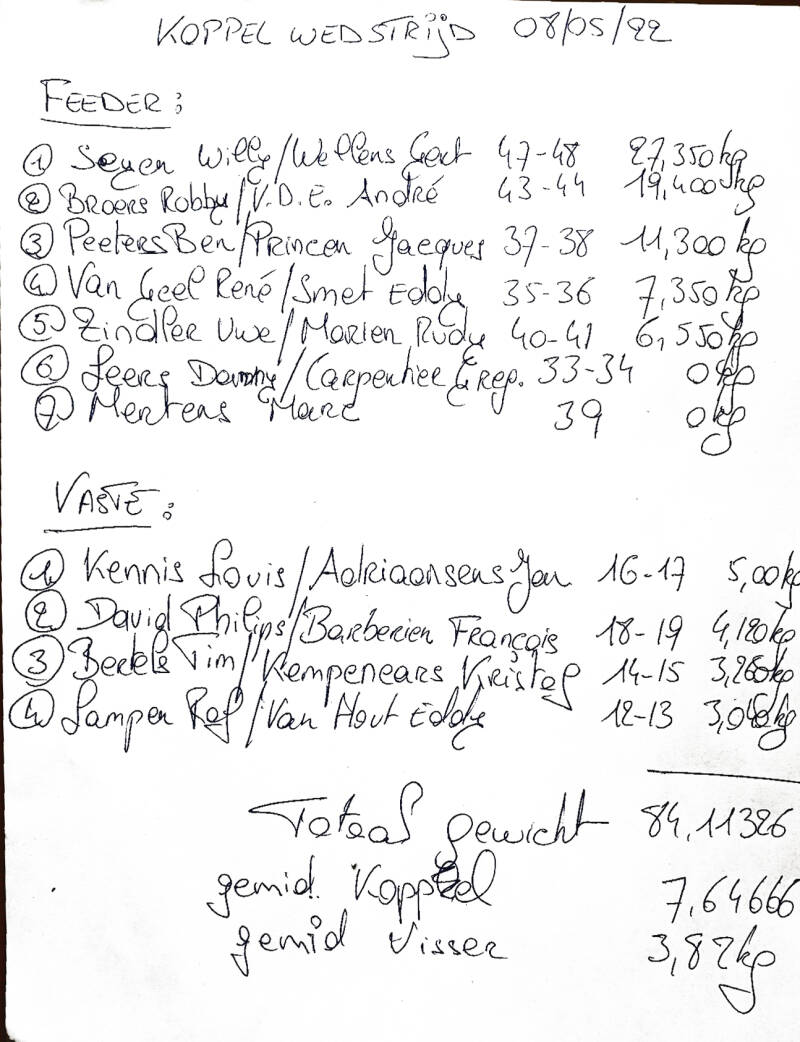 KOPPEL WEDSTRIJD 08/05/22
FEEDER:
① Seyen Willy/Wellens Gert 47-48 27,350kg
② Broers Robby/V.D.E. André 43-44 19,400kg
③ Peeters Ben/Princen Jacques 37-38 11,300kg
④ Van Geel René/Smet Eddy 35-36 7,350kg
⑤ Zindler Uwe/Marien Rudy 40-41 6,550kg
⑥ Leers Danny/Carpentier Greg. 33-34 0kg
⑦ Mertens Marc 39 0kg
VASTE:
① Kennis Louis/Adriaansens Jan 16-17 5,00kg
② David Philips/Barberien François 18-19 4,120kg
③ Bertels Tim/Kempenears Kristof 14-15 3,260kg
④ Lamper Raf/Van Hout Eddy 12-13
Totaal gewicht 84,11326
gemid. Koppel 7,64666
gemid Visser 3,82kg